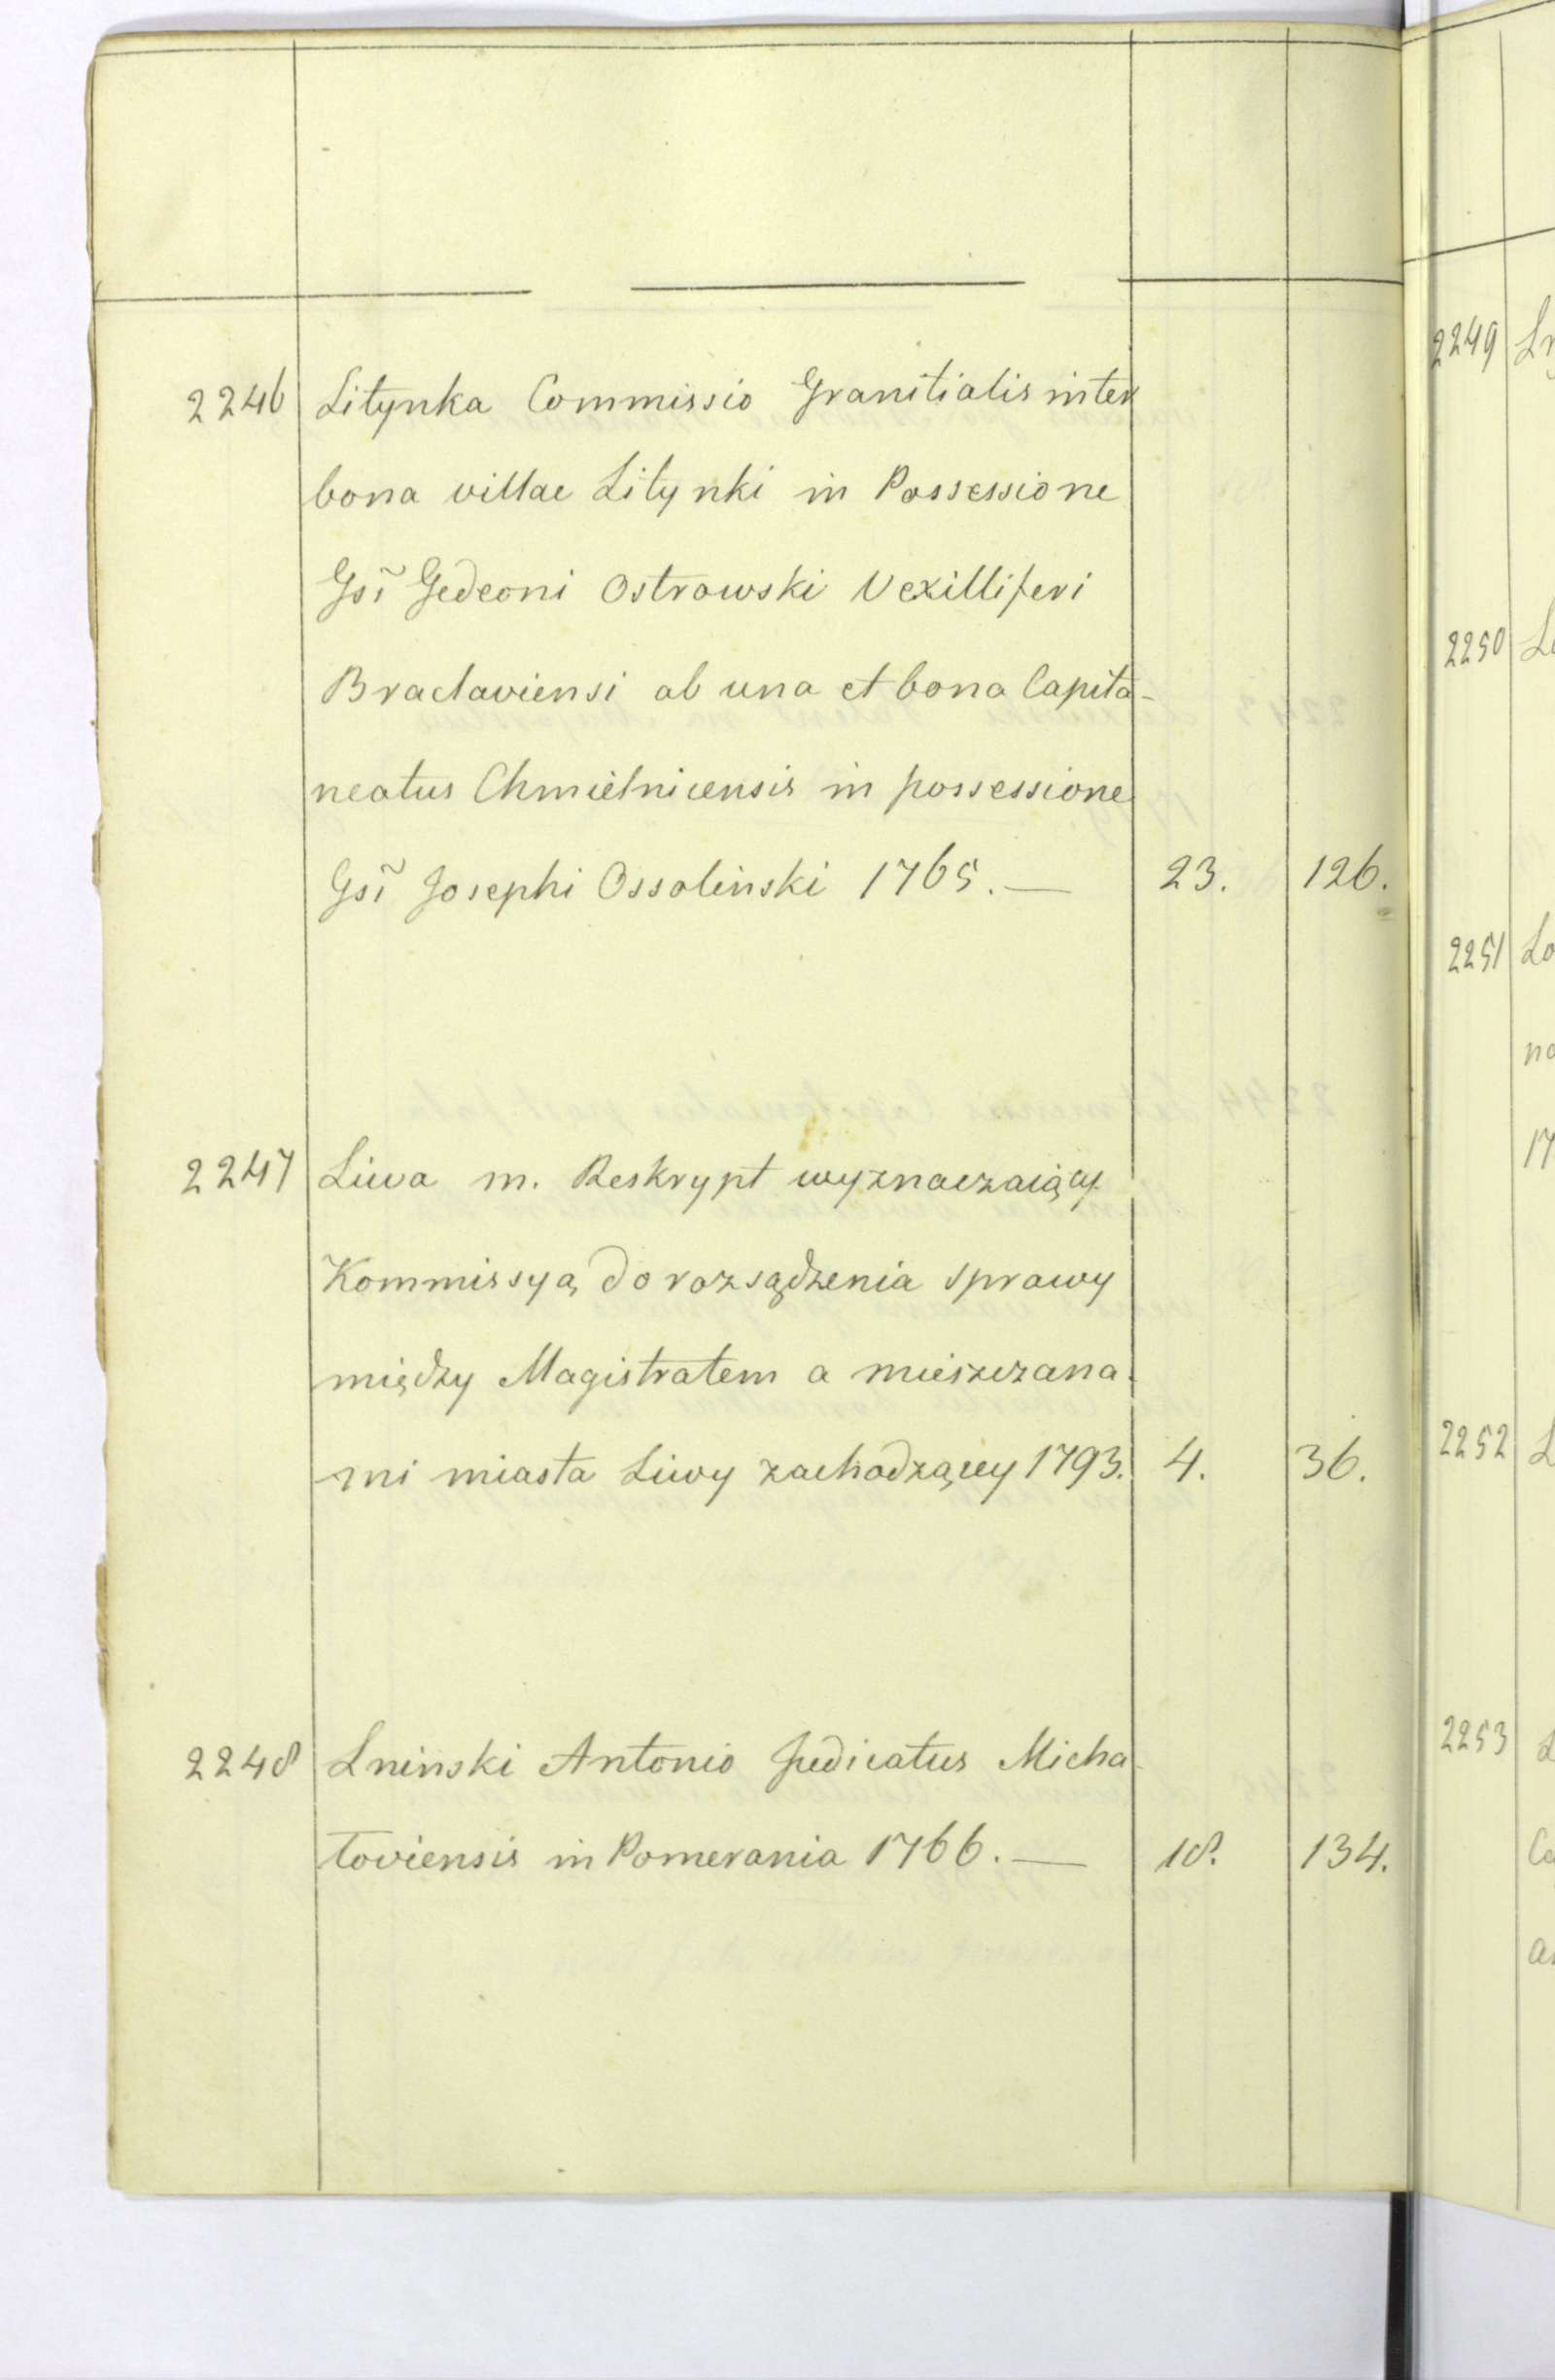 2246 Litynka Commissio Granitialis inter
bona villae Litynki in Possessione
Gsĩ Gedeoni Ostrowski Vexilliferi
Braclaviensi ab una et bona Capita-
neatus Chmielnicensis in possessione
Gsĩ Josephi Ossolinski 1765. — 23. 126.
2247 Liwa m. Reskrypt wyznaczaiący
Kommissyą do rozsądzenia sprawy
między Magistratem a mieszczana-
mi miasta Liwy zachodzącey 1793. 4. 36.
2248 Lninski Antonio Judicatus Micha-
loviensis in Pomerania 1766. — 18. 134.
2249
2250
2251 Lo
no
17
2252 L
2253